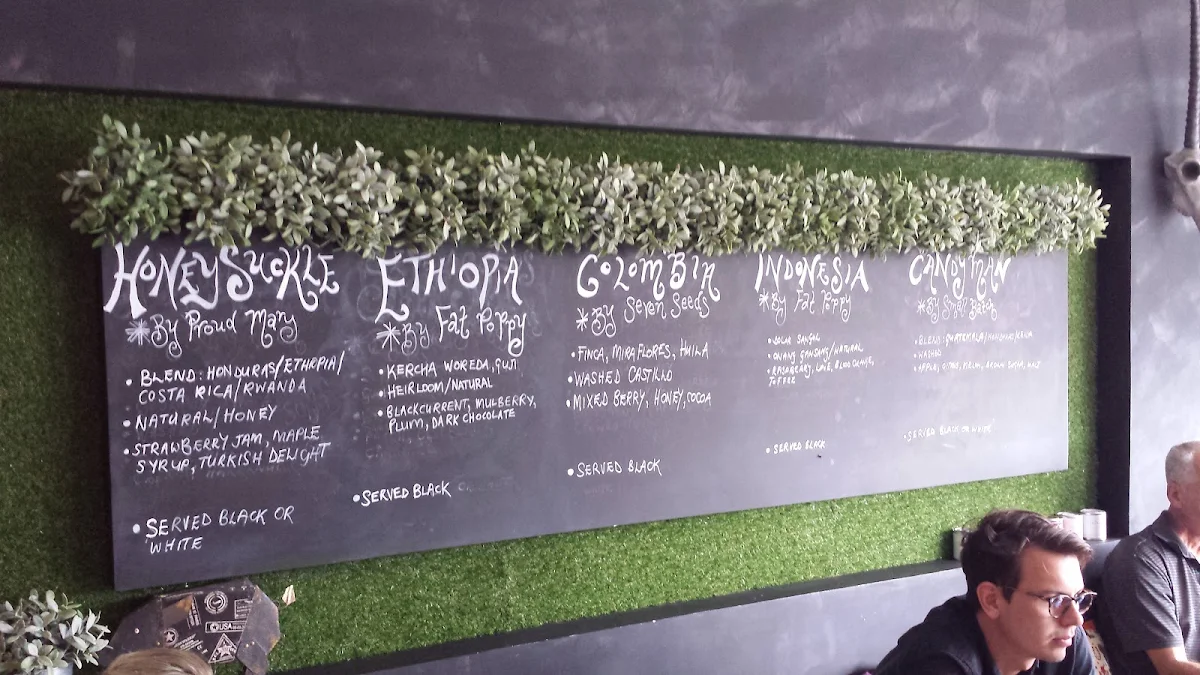 HONEYSUCKLE
*By Proud Mary
• BLEND: HONDURAS/ETHIOPIA/
COSTA RICA/RWANDA
• NATURAL/HONEY
• STRAWBERRY JAM, MAPLE
SYRUP, TURKISH DELIGHT
• SERVED BLACK OR
WHITE
ETHIOPIA
*By Fat Poppy
• KERCHA WOREDA, GUJI
• HEIRLOOM/NATURAL
• BLACKCURRENT, MULBERRY,
PLUM, DARK CHOCOLATE
• SERVED BLACK
COLOMBIA
*By Seven Seeds
• FINCA, MIRAFLORES, HUILA
• WASHED CASTILLO
• MIXED BERRY, HONEY, COCOA
• SERVED BLACK
INDONESIA
*By Fat Poppy
• NATURAL
• RASPBERRY, BLOOD ORANGE,
TOFFEE
• SERVED BLACK
CANDYMAN
*By Small Batch
• BLEND: GUATEMALA/
• WASHED
• APPLE, CITRUS, BROWN SUGAR, MALT
• SERVED BLACK OR WHITE
USA